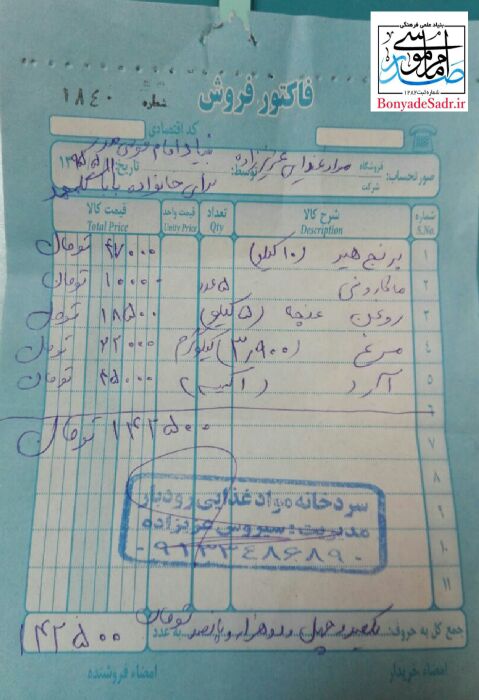 بنیاد علمی فرهنگی
امام موسی صدر
شماره ثبت ۱۲۸۲
BonyadeSadr.ir
فاکتور فروش
شماره ۱۸۴۰
کد اقتصادی
بنیاد امام موسی صدر
صورتحساب: فروشگاه شرکت مواد غذایی عزیززاده توسط: تاریخ:
برای خانواده بابا
شماره S.No. شرح کالا Description تعداد Qty قیمت واحد Unity Price قیمت کالا Total Price
۱ برنج هیر (۱۰ کیلو) ۴۷۰۰۰ تومان
۲ ماکارونی ۵ عدد ۱۰۰۰۰ تومان
۳ روغن غنچه (۵ کیلویی) ۱۸۵۰۰ تومان
۴ مرغ (۳/۹۰۰) کیلوگرم ۲۲۰۰۰ تومان
۵ آرد (۱ کیسه) ۴۵۰۰۰ تومان
۶
۷ ۱۴۲۵۰۰ تومان
۸
۹
۱۰
۱۱
سردخانه مواد غذایی رودبار
مدیریت: سیروس عزیززاده
جمع کل به حروف: یکصد و چهل و دو هزار و پانصد تومان به عدد ۱۴۲۵۰۰
امضاء خریدار امضاء فروشنده